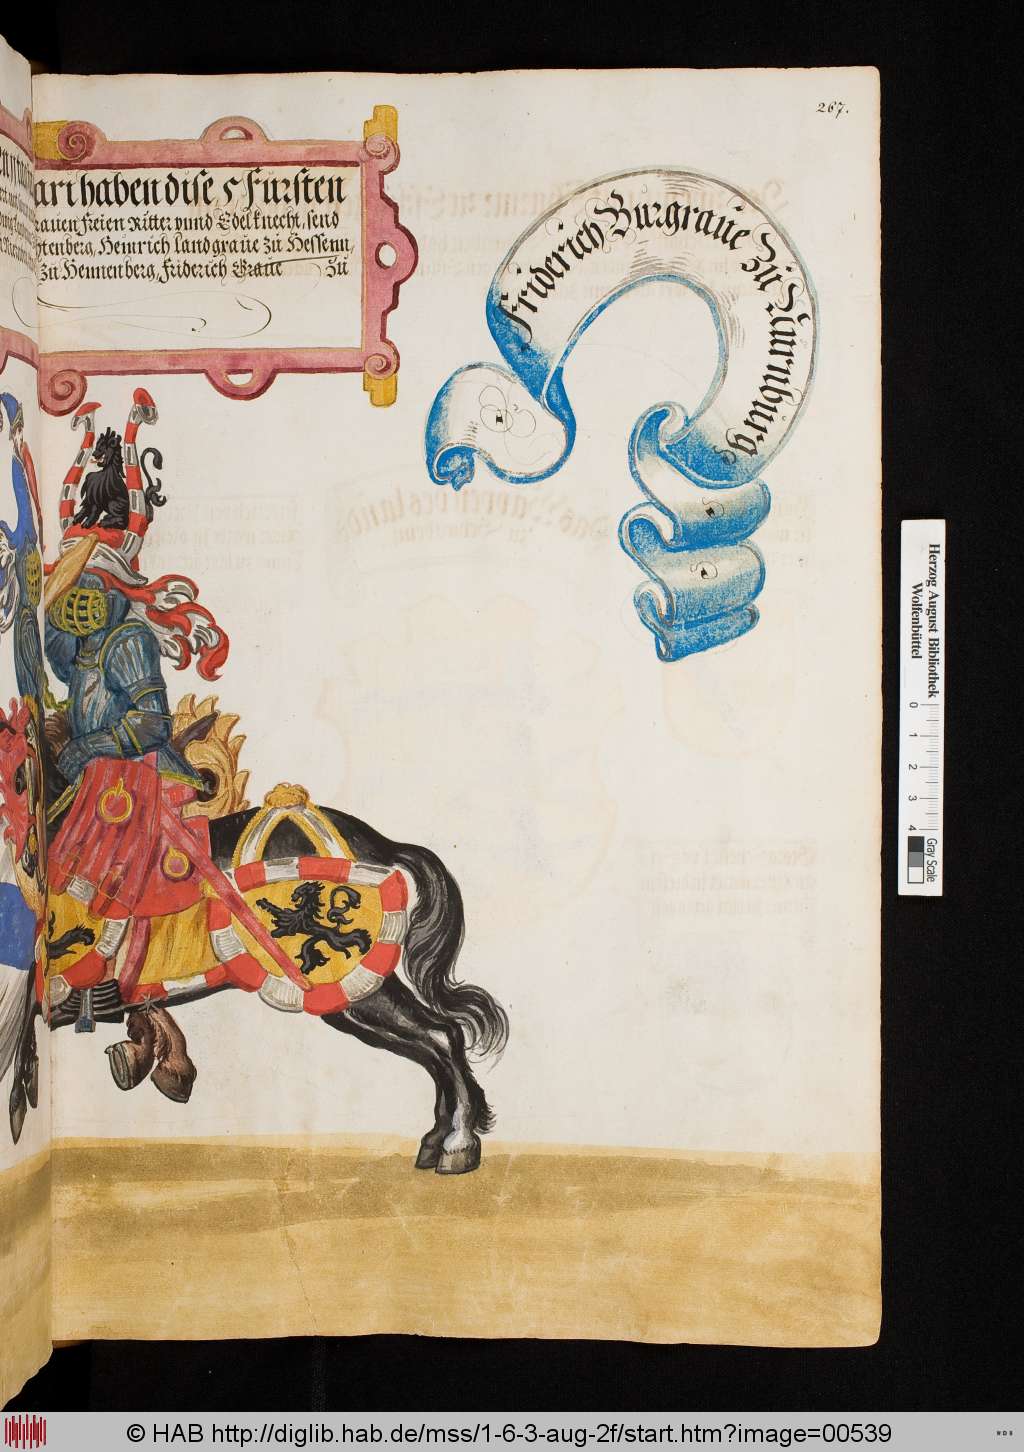 267.
art haben dise 5 Fürsten
rauen Freien Ritter vnnd Edelknecht, send
tenberg, Heinrich Landgraue zü Hessenn,
zü Hennenberg, Friderich Graue zü
Friderich Burgraue Zü Nürnbürg
Herzog August Bibliothek
Wolfenbüttel
0 1 2 3 4
Gray Scale
© HAB http://diglib.hab.de/mss/1-6-3-aug-2f/start.htm?image=00539